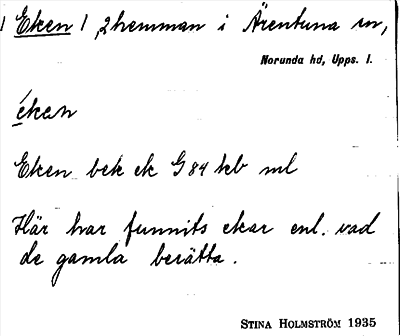 Eken 1, 2 hemman i Ärentuna sn,
Norunda hd, Upps. l.
éken
Eken bek ek G 84 kb ml
Här har funnits ekar enl. vad
de gamla berätta.
STINA HOLMSTRÖM 1935